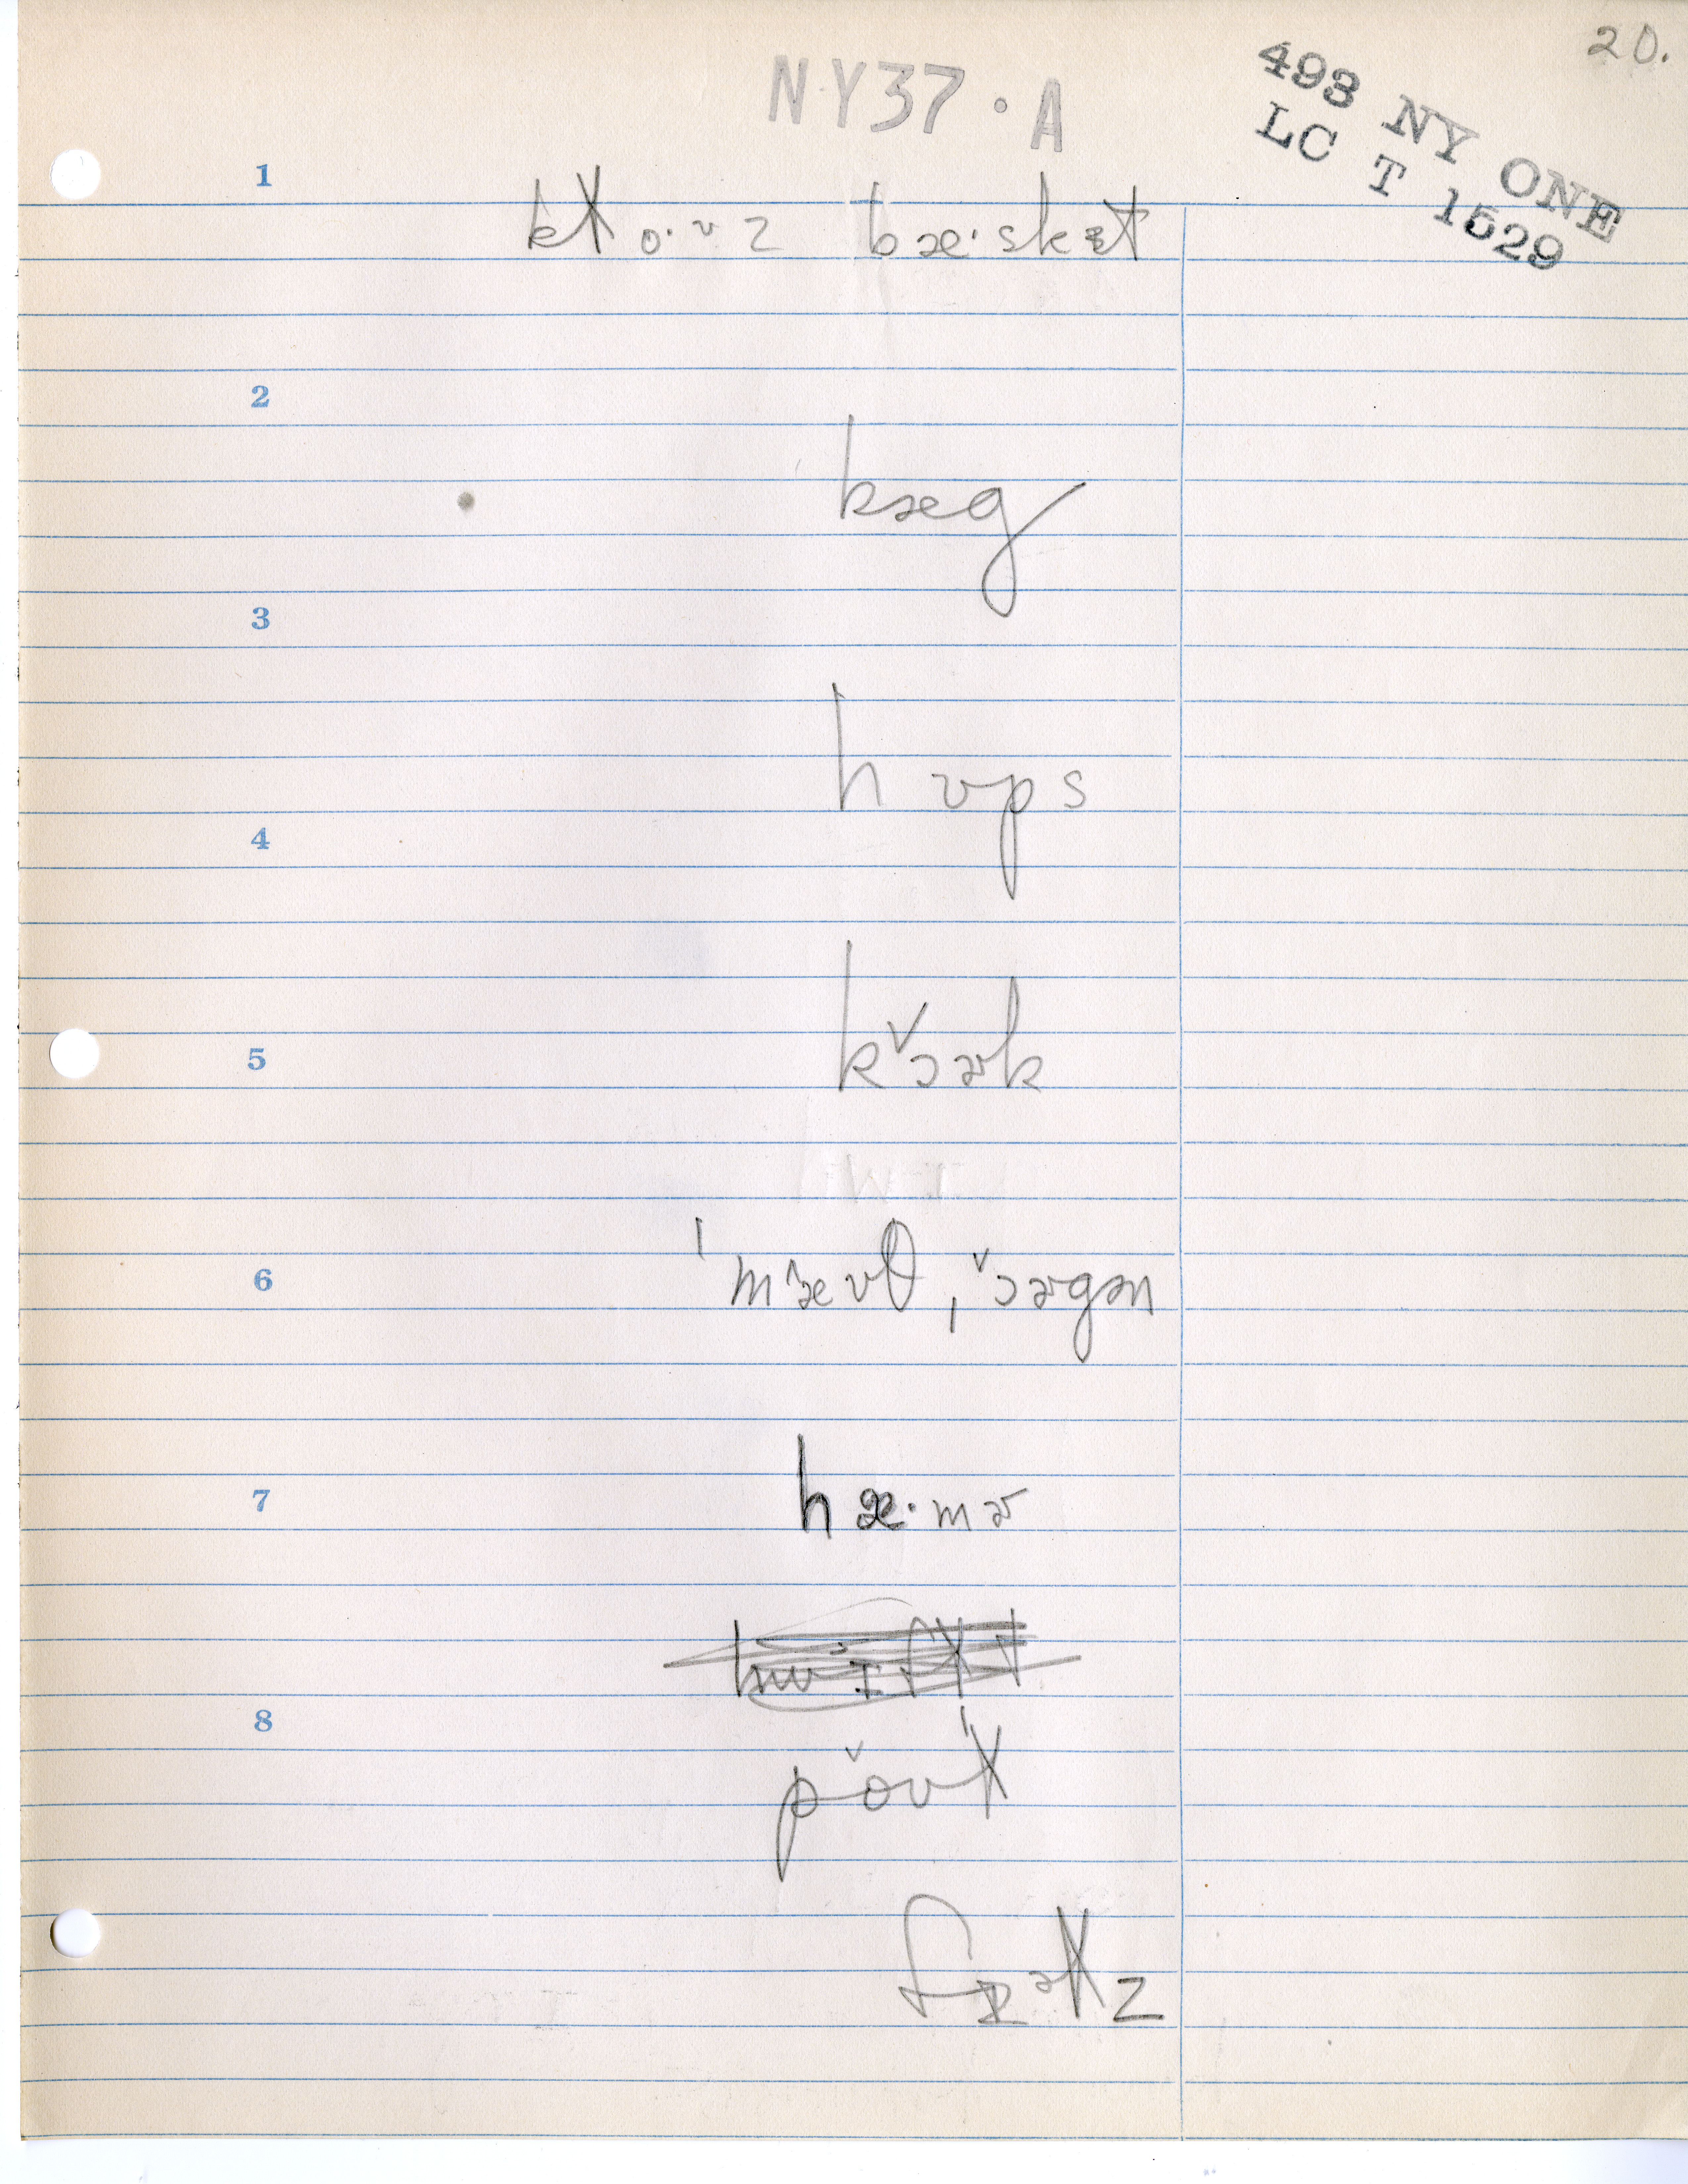 20.
NY37·A
493 NY ONE
LC T 1529
1
kɫo·ʊz bæ·skət
2
kæg
3
hʊps
4
kɔ˅ɚk
5
ˈmæ˄ʊθˌɔ˅ɚgən
6
hæ·mɚ
7
8
po˅ʊɫ
fɪəɫz